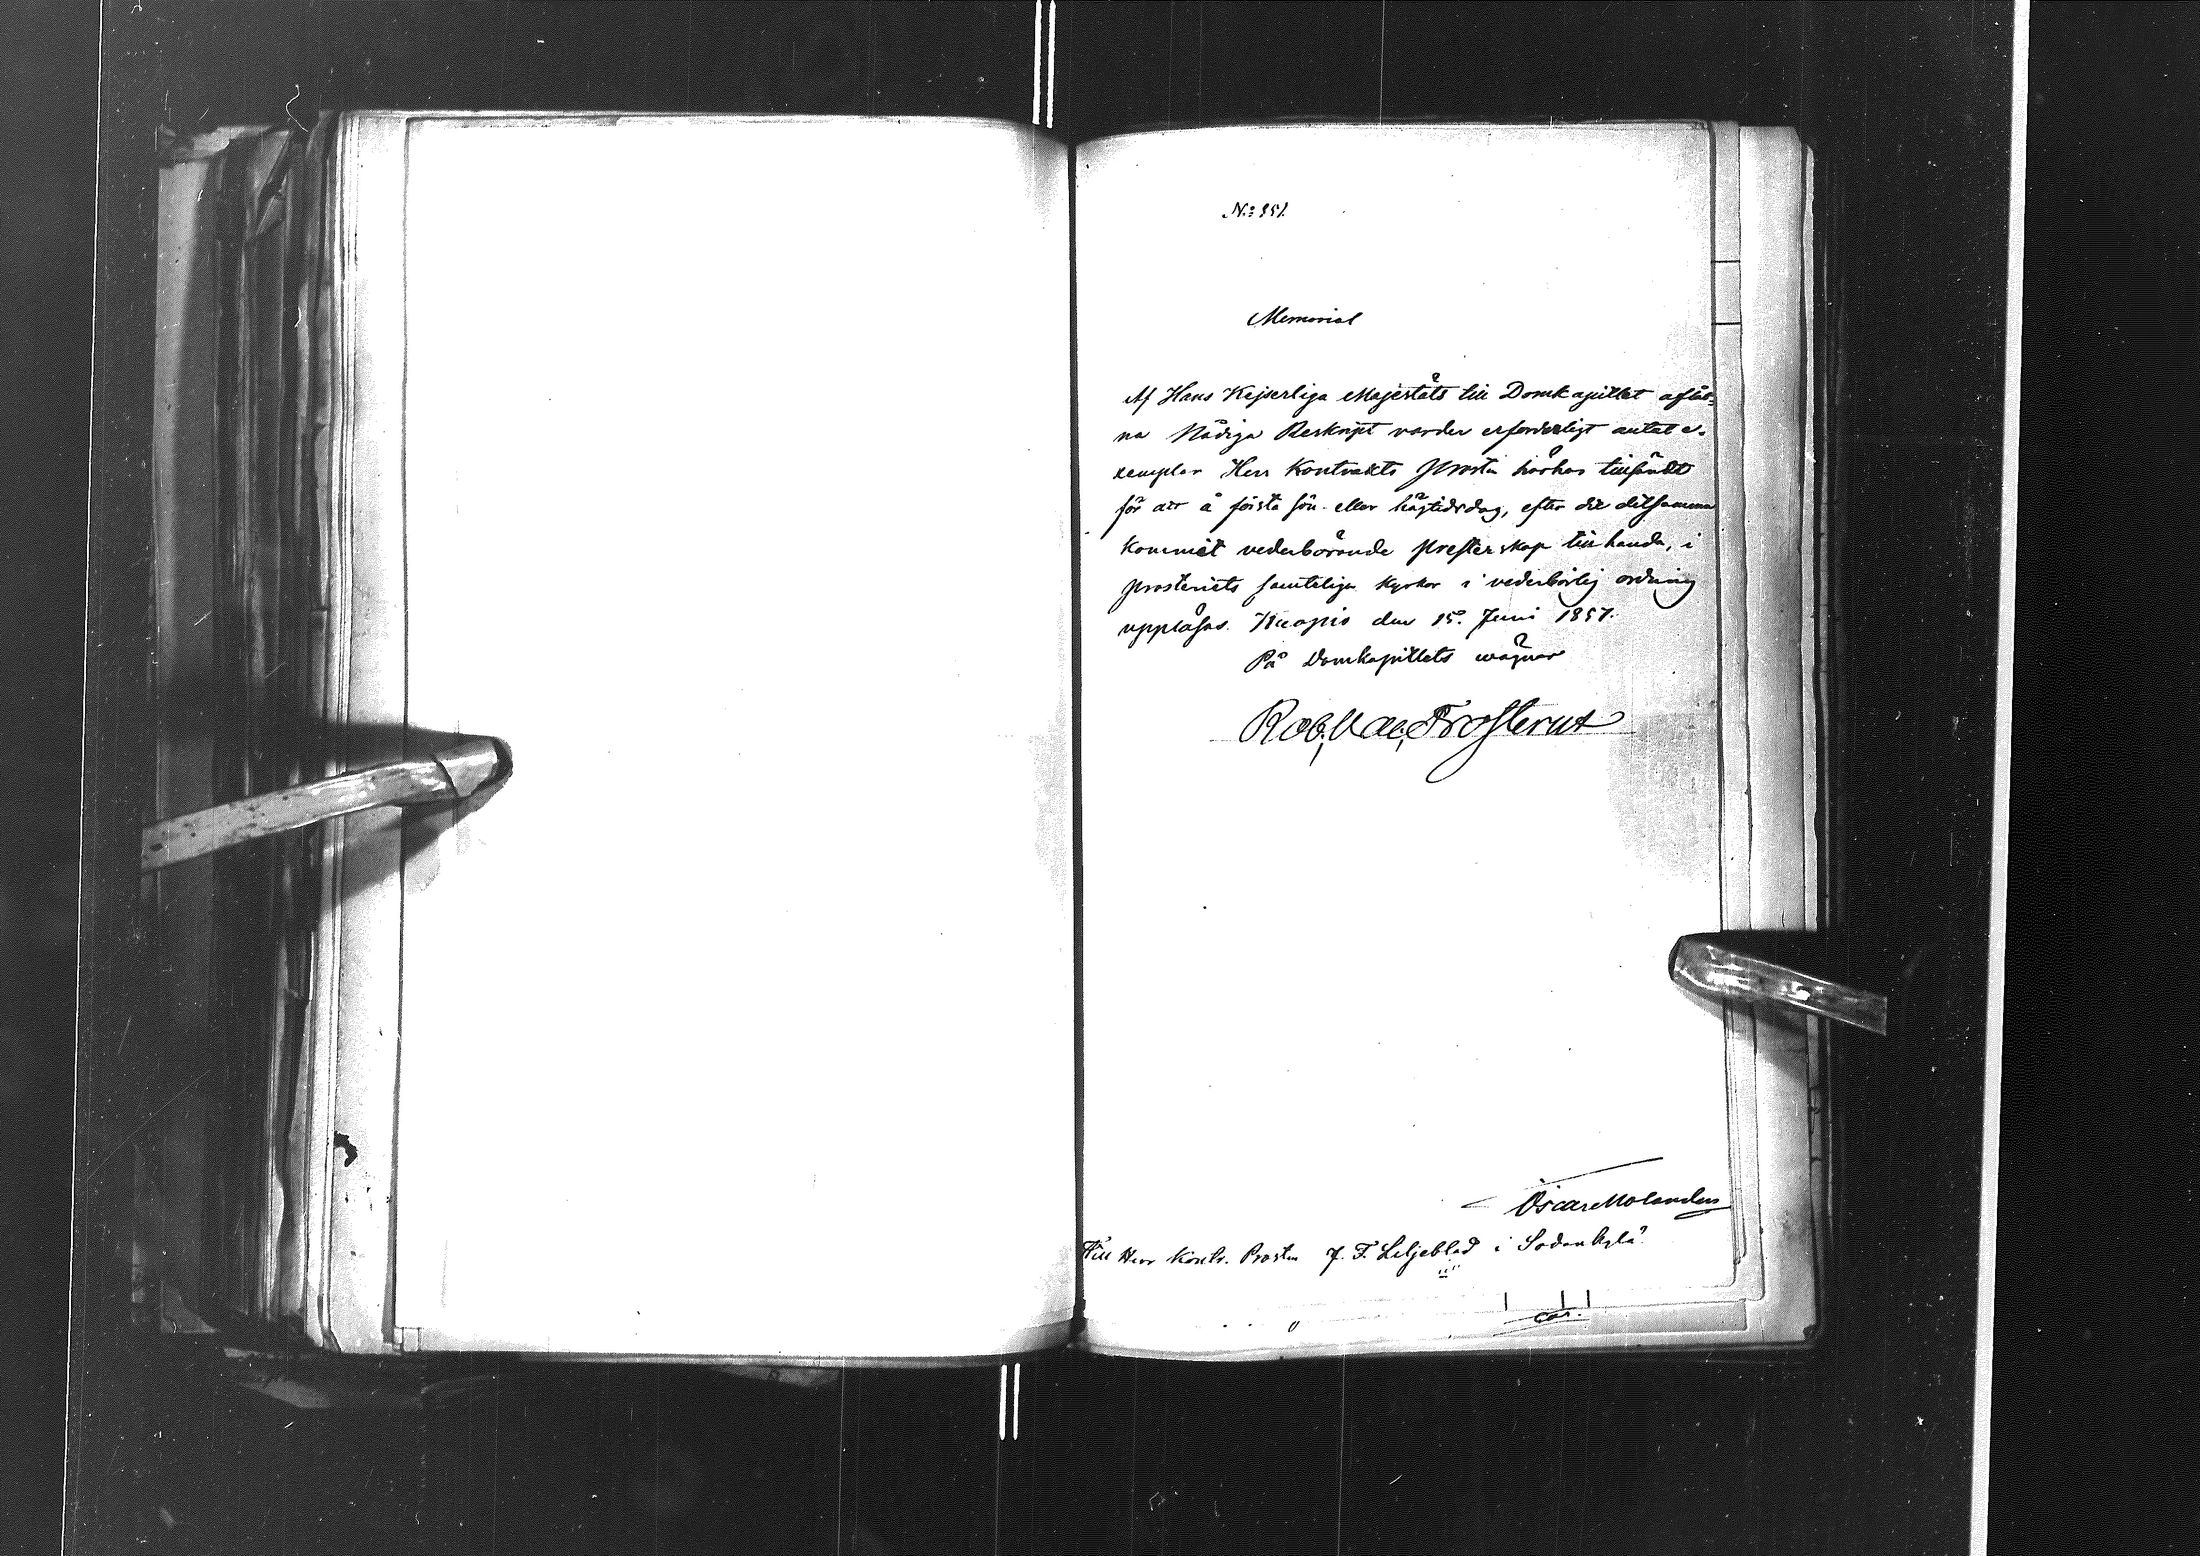 N:o 551.
Memorial
Af Hans Kejserliga Majestäts till Domkapitlet aflåt-
na Nådiga Reskript varder erforderligt antal e-
xemplar Herr Kontrakts Prosten härhos tillsändt
för att å första sön- eller högtidsdag, efter det detsamma
kommit vederbörande presterskap till handa, i
prosteriets samteliga kyrkor i vederbörlig ordning
uppläsas. Kuopio den 15. Juni 1857.
På Domkapitlets vägnar
Rob. Val. Frosterus
Oscar Molander
Till Herr Kontr. Prosten J. F. Liljeblad i Sodankylä